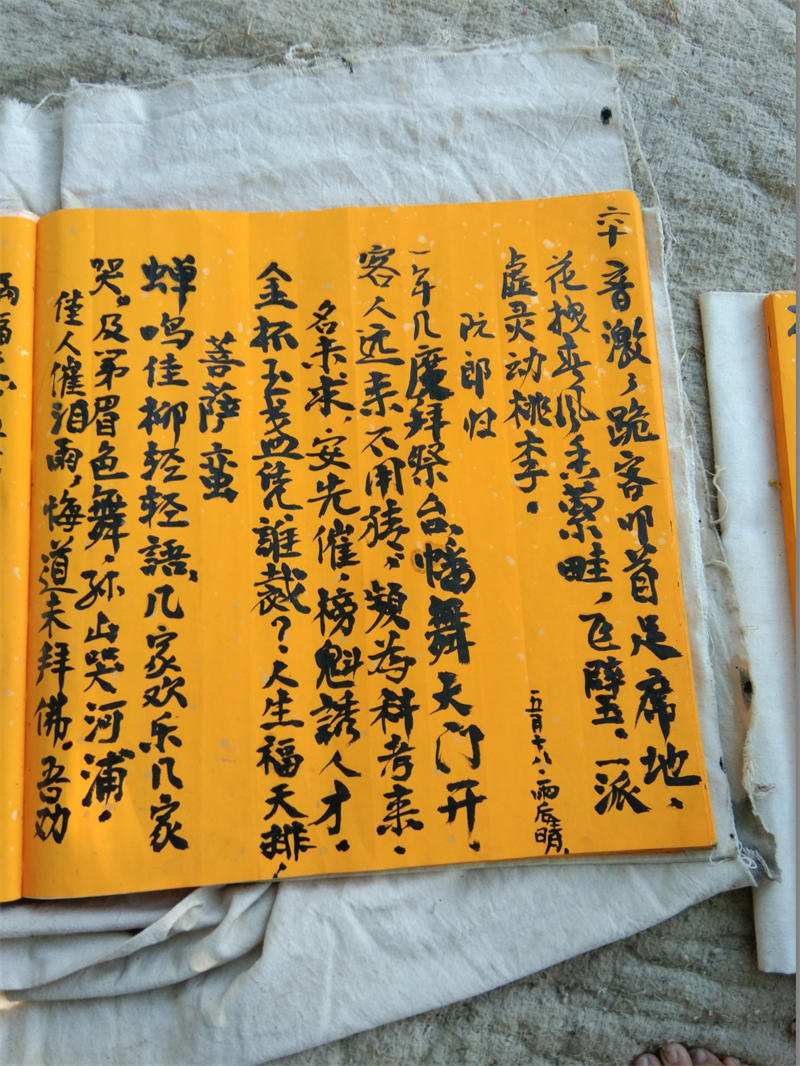 六十
音激、跪客叩首足席地、
花拽春风香萦畦，飞壁玉、一派
虚灵动桃李。
一五年五月十八，雨后晴，
阮郎归
一年几度拜祭台、幡舞天门开、
客人远来不用猜，频为科考来。
名未求，安先催，榜魁誘人才。
金杯玉盏凭誰裁？人生福天排，
菩萨蛮
蝉鸣佳柳轻轻語、几家欢乐几家
哭。及弟眉色舞，孙山哭河浦。
佳人催泪雨，悔道未拜佛。吾劝